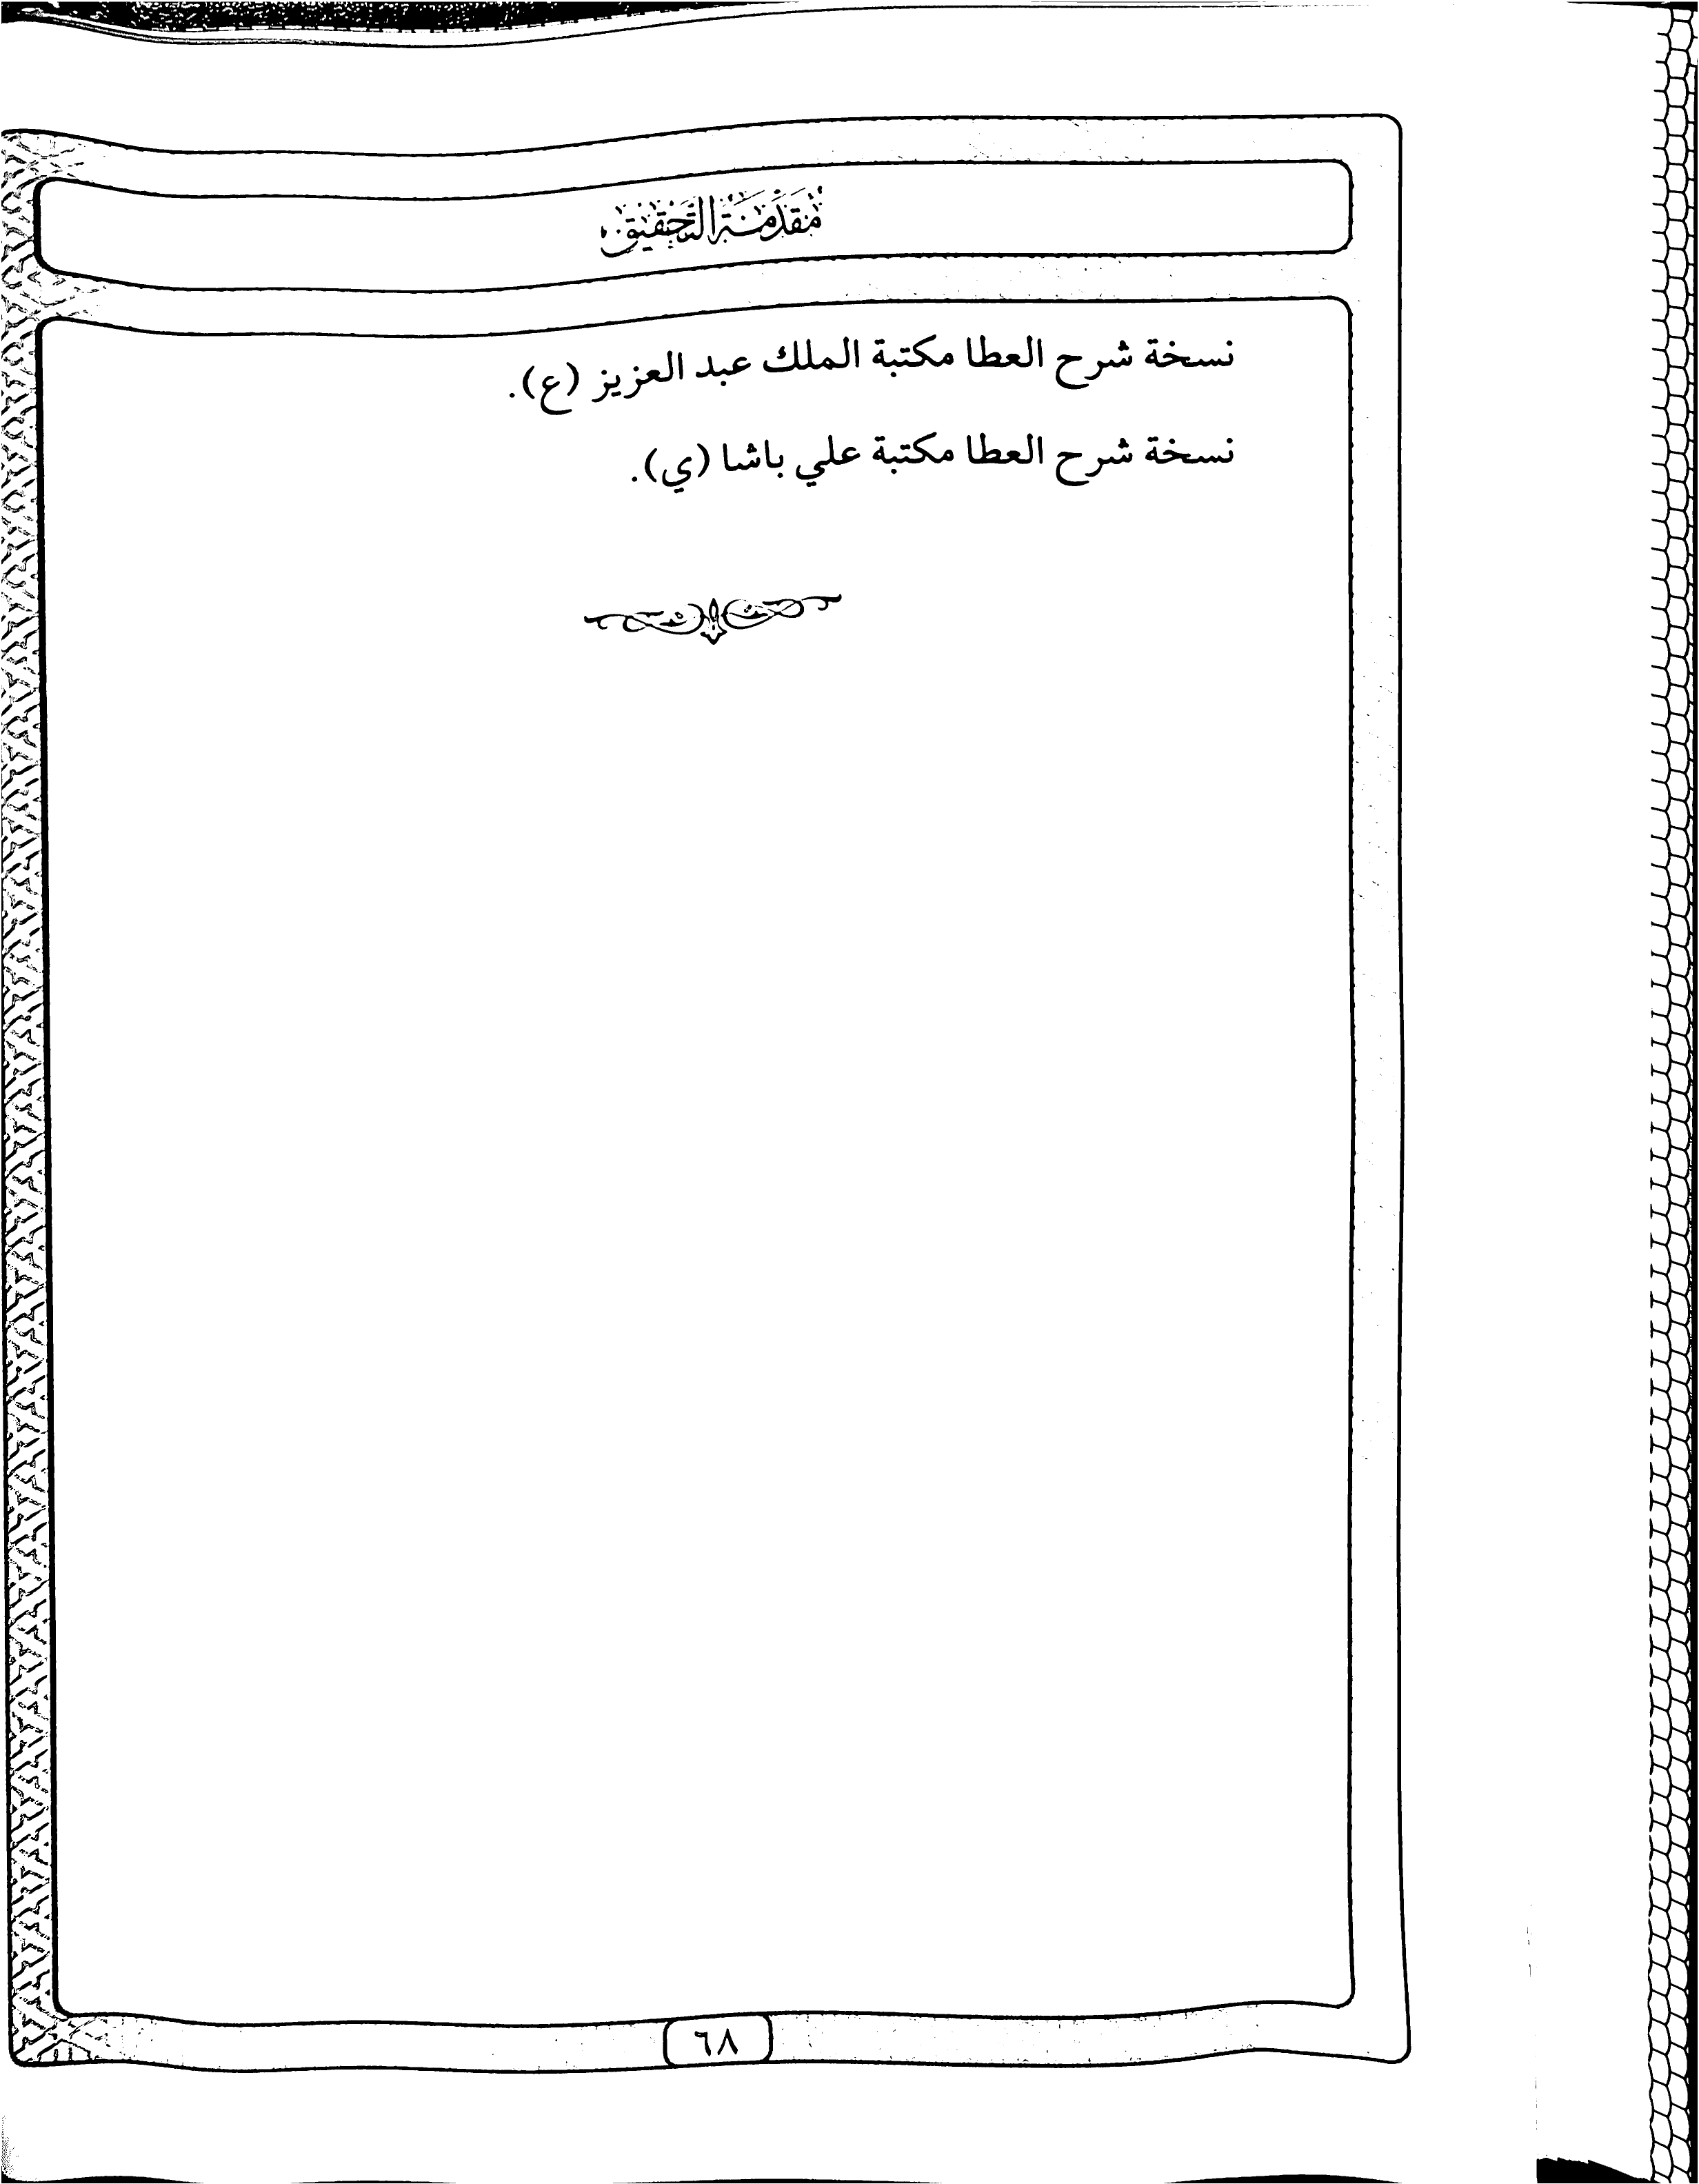 مقدمة التحقيق
نسخة شرح العطا مكتبة الملك عبد العزيز (ع).
نسخة شرح العطا مكتبة علي باشا (ي).
٦٨